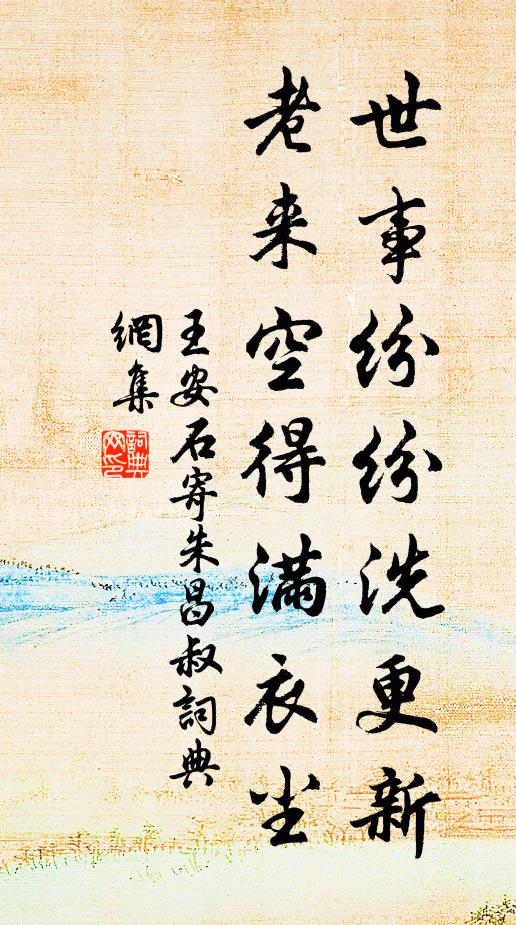 世事纷纷洗更新
老来空得满衣尘
王安石寄朱昌叔詞典
網集
詞典网印